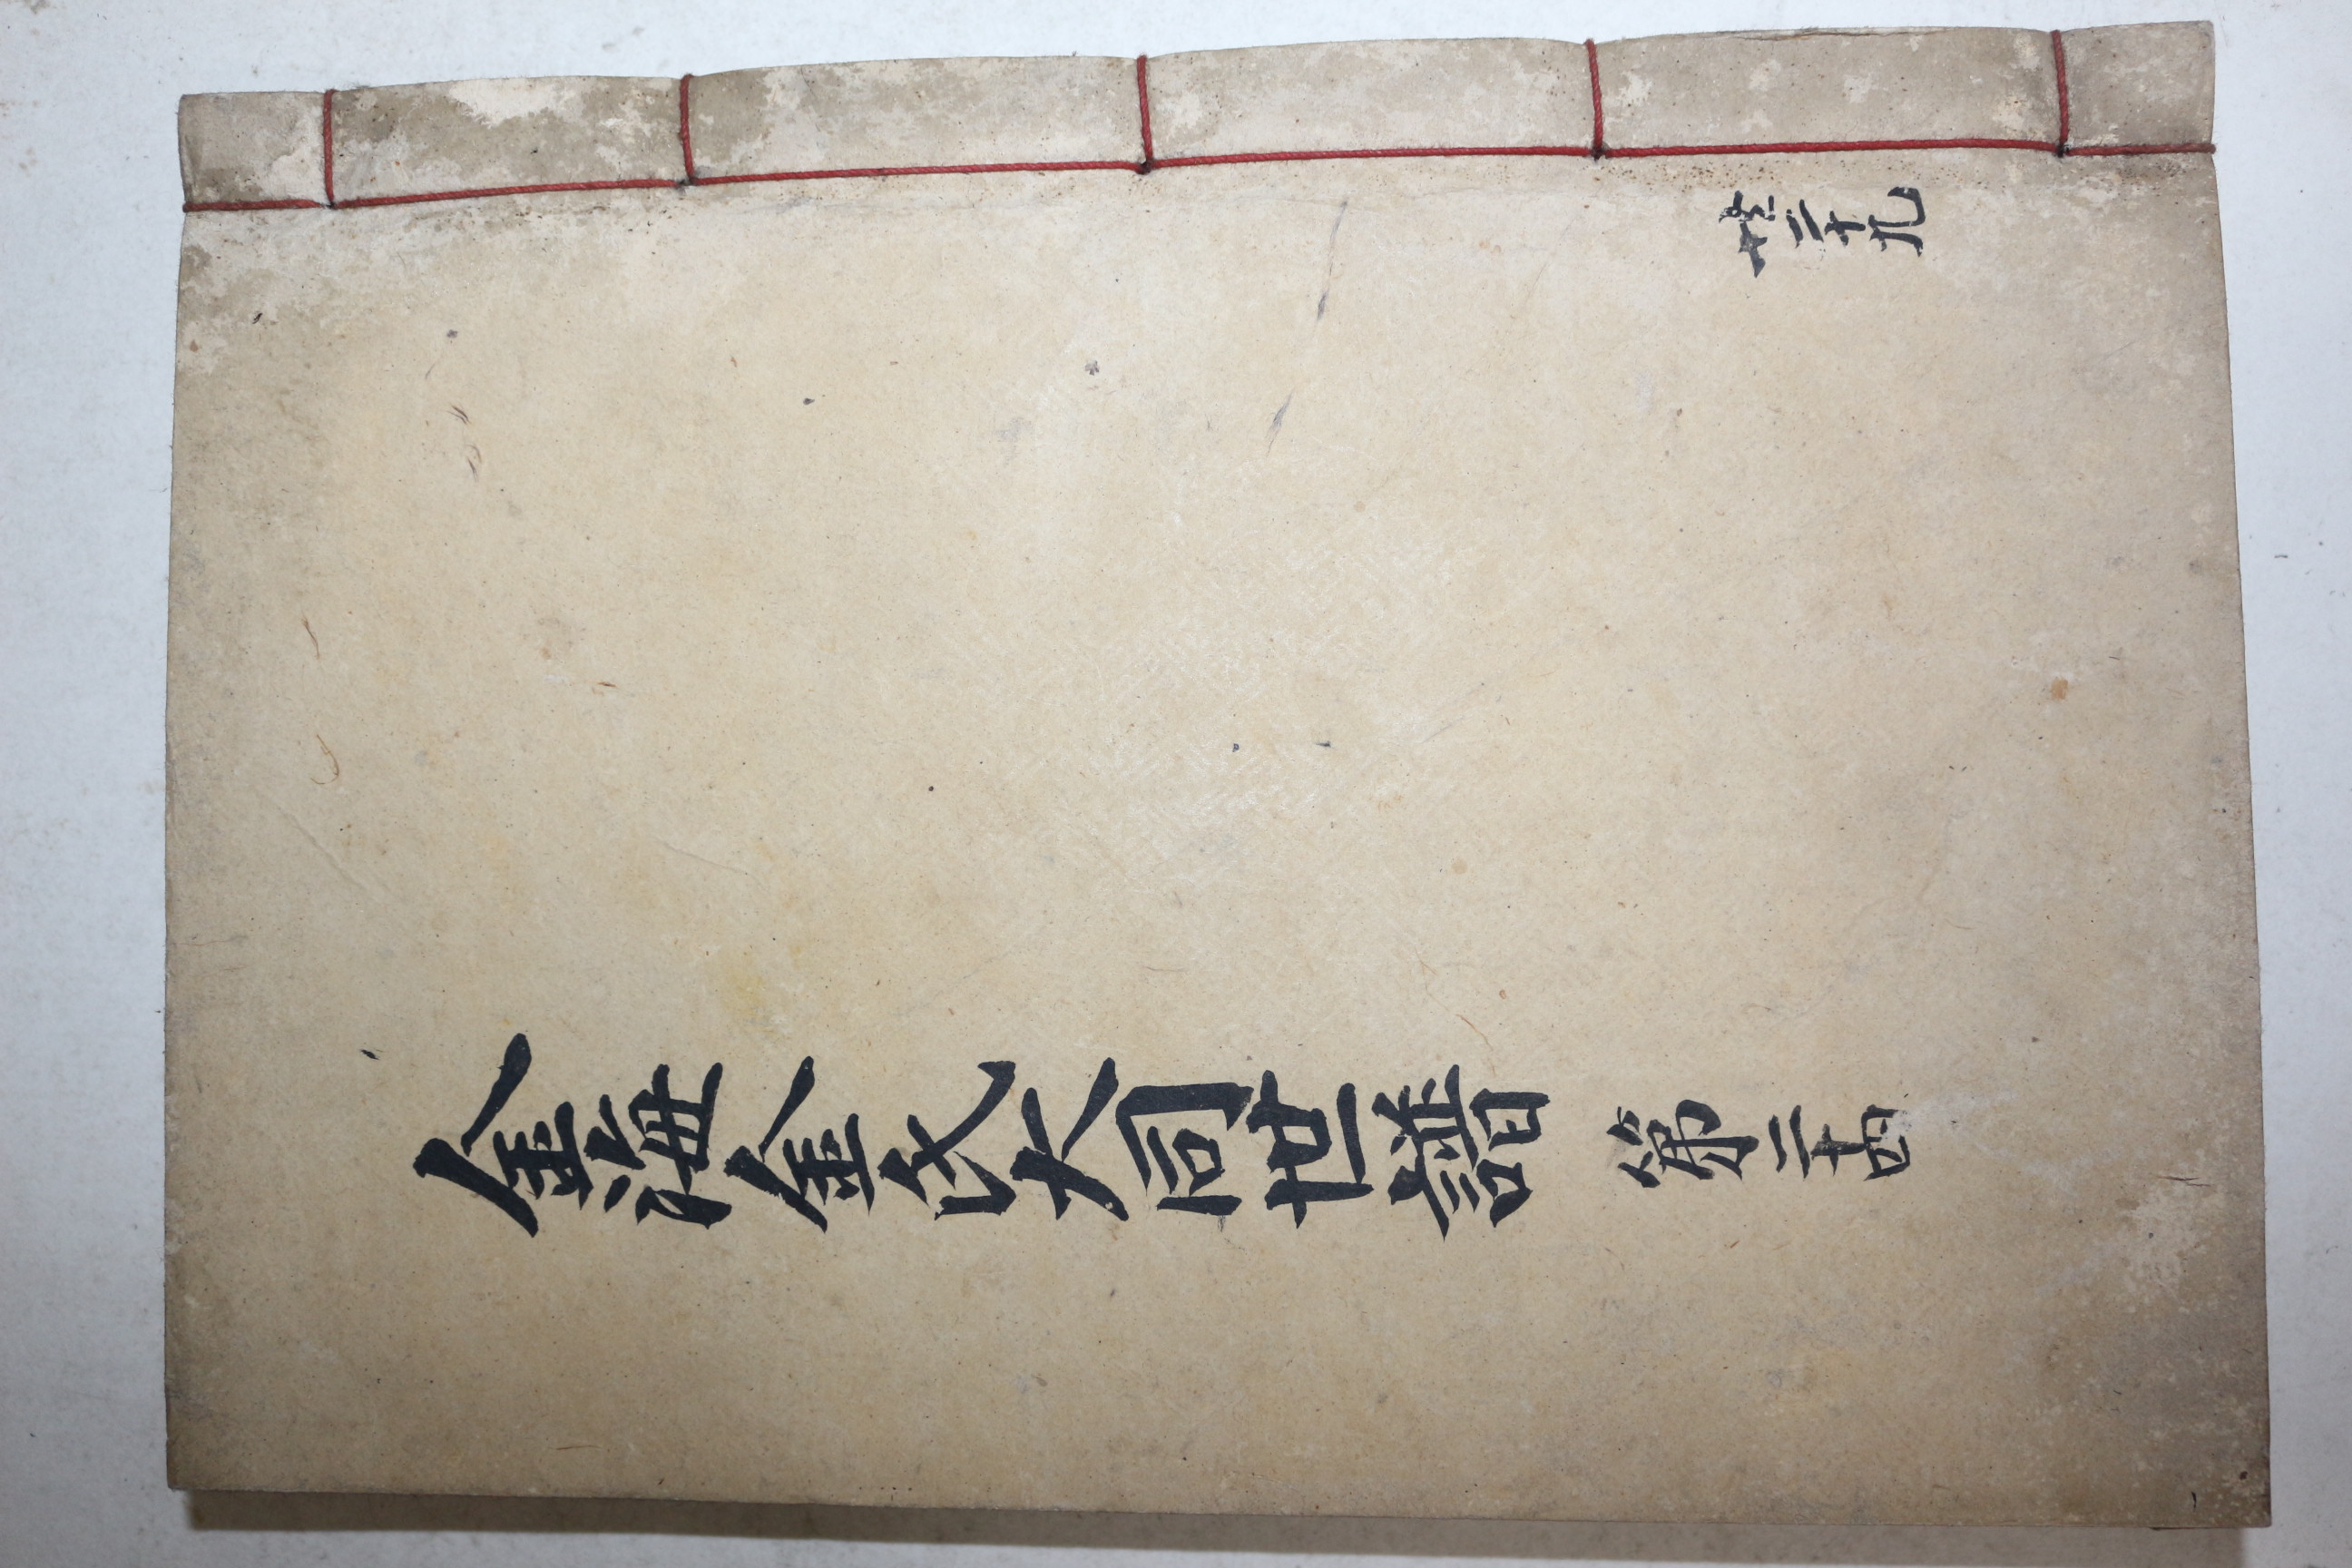 金海金氏大同世譜 第二十四
二十九